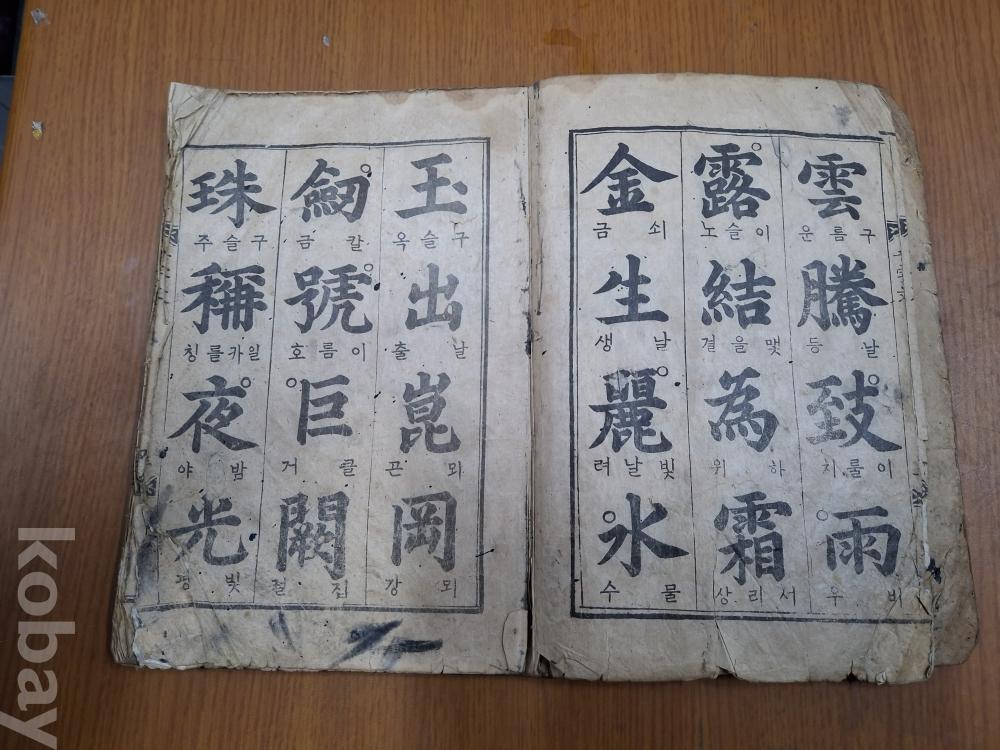 雲
구름 운
騰
날 등
致
이룰 치
雨
비 우
露
이슬 노
結
맺을 결
為
하 위
霜
서리 상
金
쇠 금
生
날 생
麗
빛날 려
水
물 수
玉
구슬 옥
出
날 출
崑
뫼 곤
岡
뫼 강
劒
칼 금
號
이름 호
巨
클 거
闕
집 궐
珠
구슬 주
稱
일카를 칭
夜
밤 야
光
빛 광
kobay